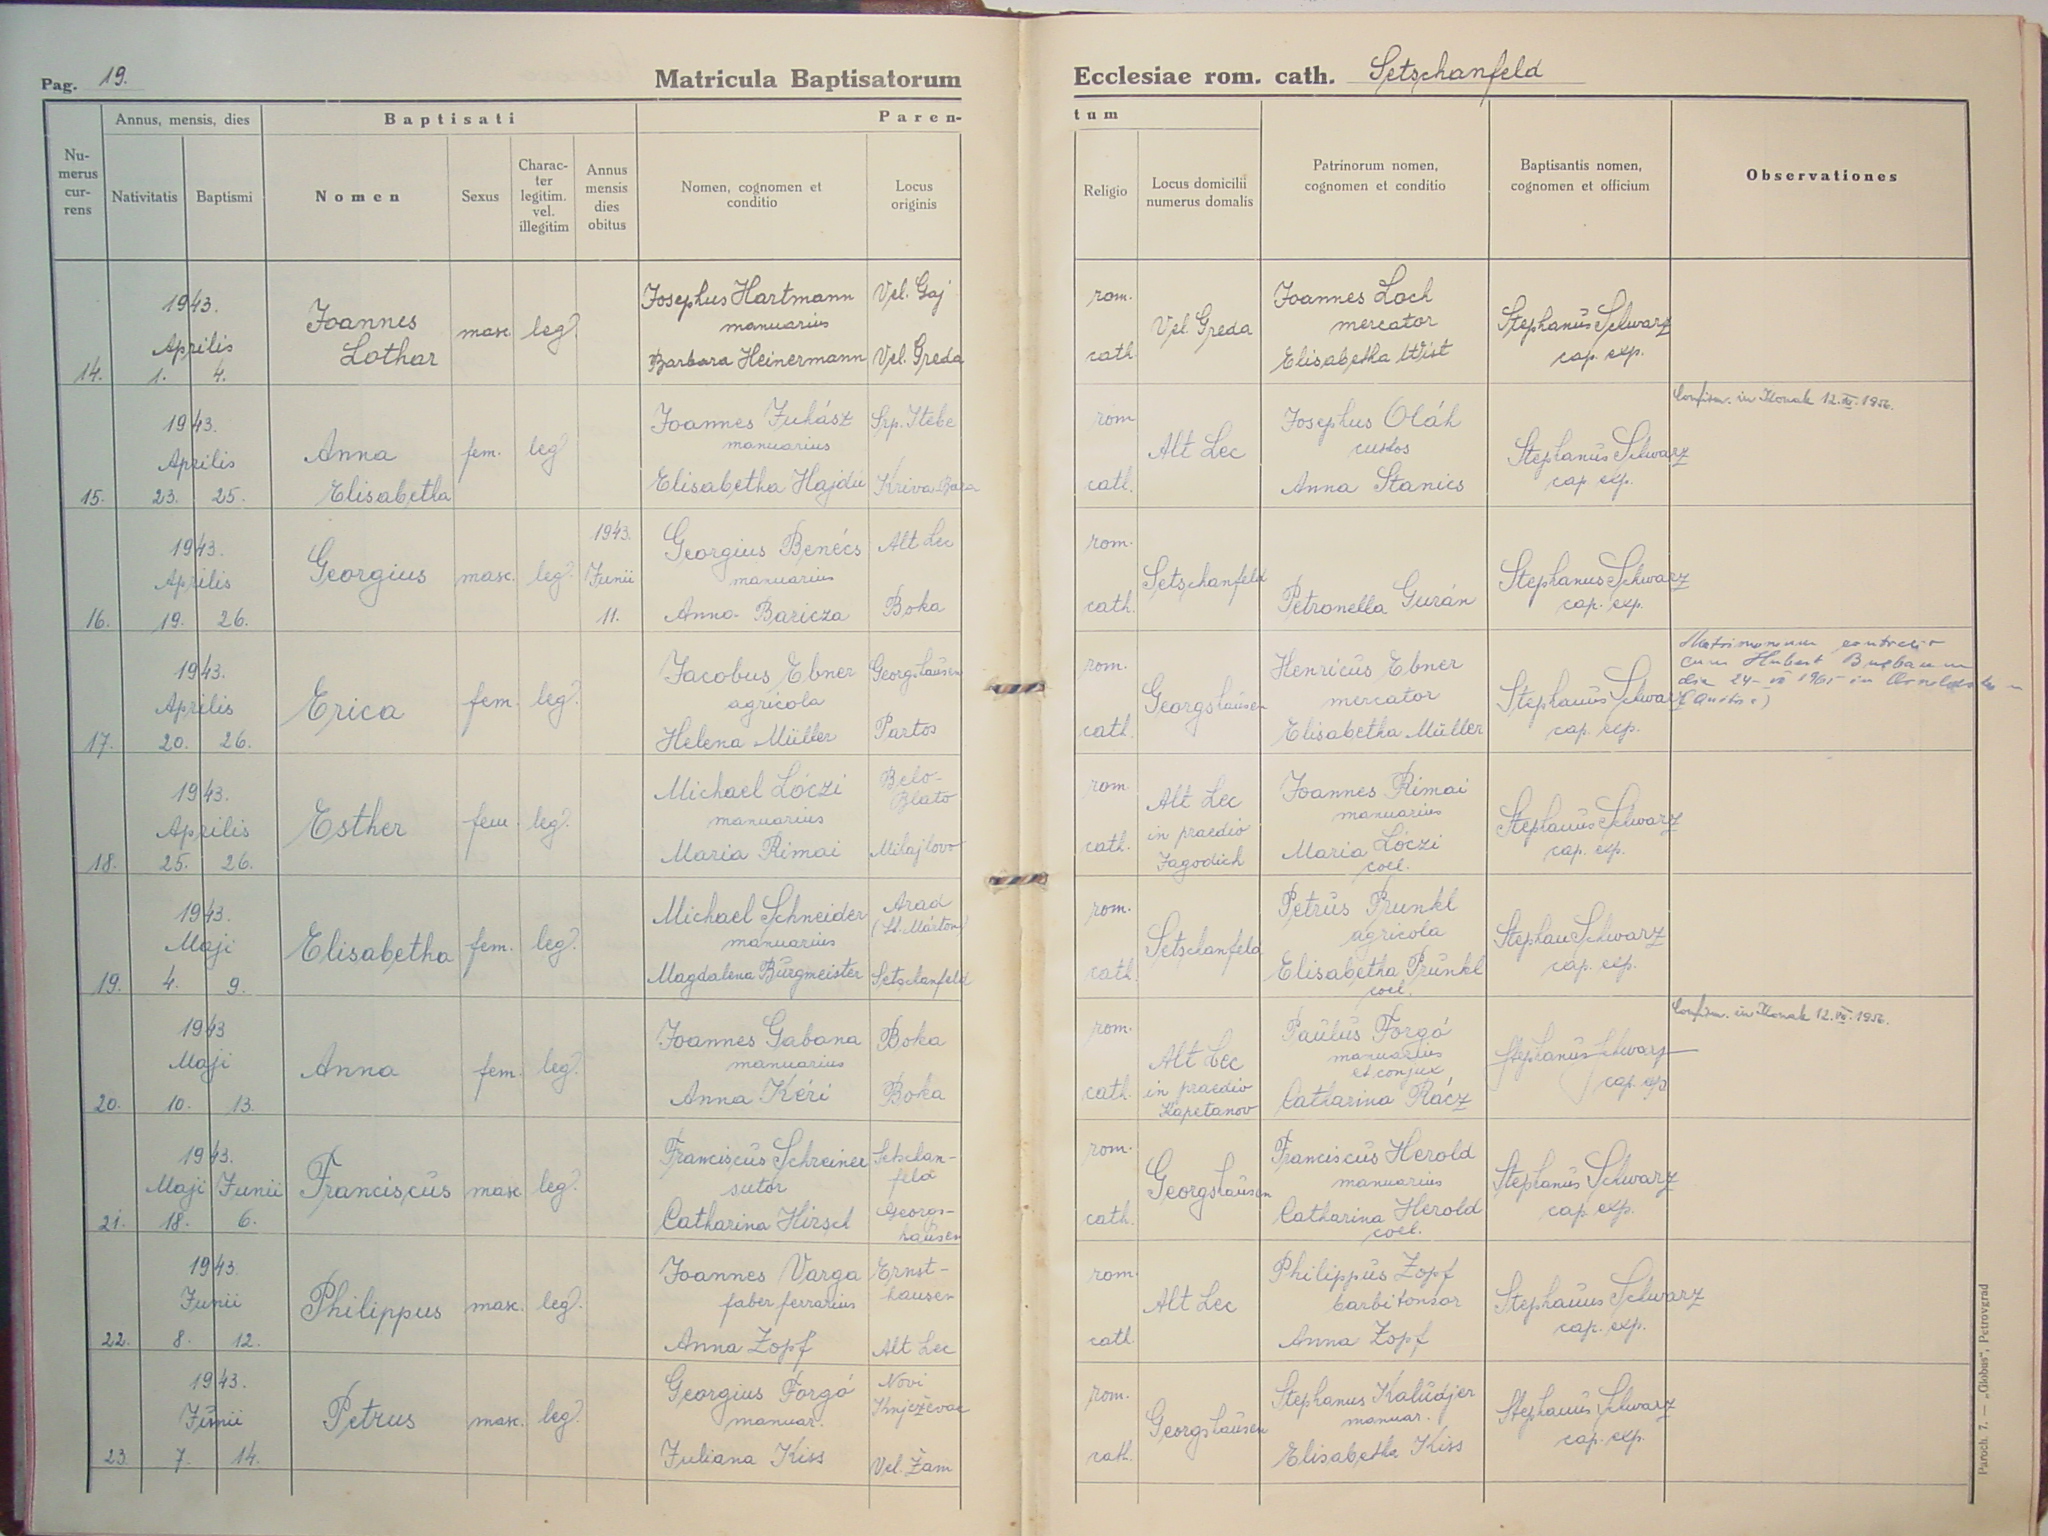 Pag. 19.
Matricula Baptisatorum
Ecclesiae rom. cath. Setschanfeld
Numerus currens
Annus, mensis, dies
Nativitatis
Baptismi
Baptisati
Nomen
Sexus
Charac-
ter
legitim.
vel.
illegitim
Annus
mensis
dies
obitus
Paren-
tum
Nomen, cognomen et
conditio
Locus
originis
Religio
Locus domicilii
numerus domalis
Patrinorum nomen,
cognomen et conditio
Baptisantis nomen,
cognomen et officium
Observationes
14. 1943. Aprilis 1. 4.
Joannes
Lothar
masc. leg.
Josephus Hartmann Vel. Gaj
manuarius
Barbara Heinermann Vel. Greda
rom.
cath.
Vel Greda
Joannes Loch
mercator
Elisabetha Wist
Stephanus Schwarz
cap. exp.
15. 1943. Aprilis 23. 25.
Anna
Elisabetha
fem. leg.
Joannes Juhász Srp. Itebe
manuarius
Elisabetha Hajdú Kriva Bara
rom
cath.
Alt Lec
Josephus Oláh
custos
Anna Stanics
Stephanus Schwarz
cap. exp.
Confirm. in Konak 12. 1956.
16. 1943. Aprilis 19. 26.
Georgius
masc. leg.
1943. Junii 11.
Georgius Benécs Alt Lec
manuarius
Anna Baricza Boka
rom.
cath.
Setschanfeld
Petronella Gurán
Stephanus Schwarz
cap. exp.
17. 1943. Aprilis 20. 26.
Erica
fem. leg.
Jacobus Ebner Georgshausen
agricola
Helena Müller Partos
rom.
cath.
Georgshausen
Henricus Ebner
mercator
Elisabetha Müller
Stephanus Schwarz
cap. exp.
Matrimonium
cum Hubert
die 24 1965 in
18. 1943. Aprilis 25. 26.
Esther
fem. leg.
Michael Lóczi Belo-
Blato
manuarius
Maria Rimai Mihajlovo
rom.
cath.
Alt Lec
in praedio
Jagodich
Joannes Rimai
manuarius
Maria Lóczi
coel.
Stephanus Schwarz
cap. exp.
19. 1943. Maji 4. 9.
Elisabetha
fem. leg.
Michael Schneider Arad
manuarius
Magdalena Burgmeister Setschanfeld
rom.
cath
Setschanfeld
Petrus Prunkl
agricola
Elisabetha Prunkl
coel.
Stephan Schwarz
cap. exp.
20. 1943 Maji 10. 13.
Anna
fem. leg.
Joannes Gabana Boka
manuarius
Anna Kéri Boka
rom.
cath.
Alt Lec
in praedio
Kapetanov
Paulus Forgó
manuarius
et conjux
Catharina Rácz
Stephanus Schwarz
cap. exp
Confirm. in Konak 12. 1956.
21. 1943. Maji 18. Junii 6.
Franciscus
masc. leg.
Franciscus Schreiner Setschan-
feld
sutor
Catharina Hirsch Georgs-
hausen
rom.
cath.
Georgshausen
Franciscus Herold
manuarius
Catharina Herold
coel.
Stephanus Schwarz
cap. exp.
22. 1943. Junii 8. 12.
Philippus
masc. leg.
Joannes Varga Ernst-
hausen
faber ferrarius
Anna Zopf Alt Lec
rom.
cath
Alt Lec
Philippus Zopf
barbitonsor
Anna Zopf
Stephanus Schwarz
cap. exp.
23. 1943. Junii 7. 14.
Petrus
masc. leg.
Georgius Forgó Novi
Knježevac
manuar.
Juliana Kiss Vel. Žam
rom.
cath.
Georgshausen
Stephanus Kaludjer
manuar.
Elisabetha Kiss
Stephanus Schwarz
cap. exp.
Paroch. 7. — „Globus“, Petrovgrad